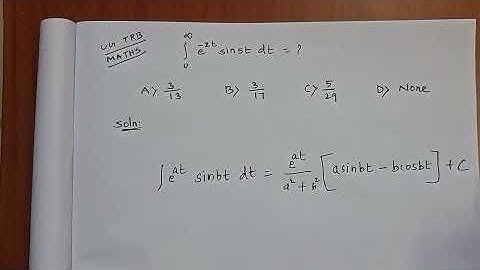 UG TRB
MATHS
∫₀^∞ e^{-2t} sin5t dt = ?
A) 3/13 B) 3/17 C) 5/29 D) None
Soln:
∫ e^{at} sinbt dt = e^{at}/(a²+b²) [asinbt - bcosbt] + C